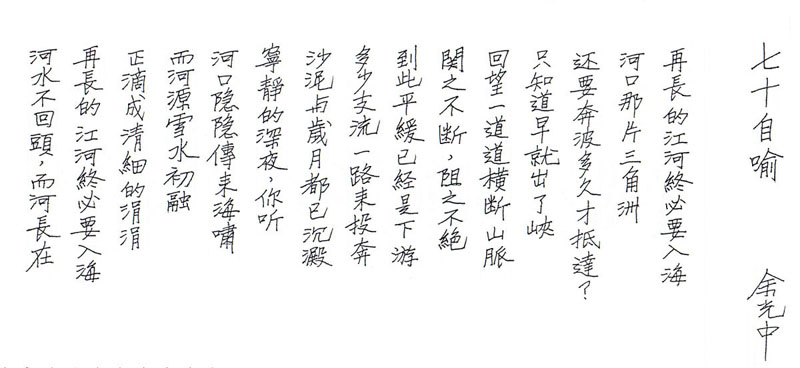 七十自喻
余光中
再長的江河終必要入海
河口那片三角洲
还要奔波多久才抵達？
只知道早就出了峽
回望一道道横断山脈
関之不断，阻之不絶
到此平緩已经是下游
多少支流一路来投奔
沙泥与歲月都已沉澱
寧靜的深夜，你听
河口隐隐傳来海嘯
而河源雪水初融
正滴成清細的涓涓
再長的江河終必要入海
河水不回頭，而河長在